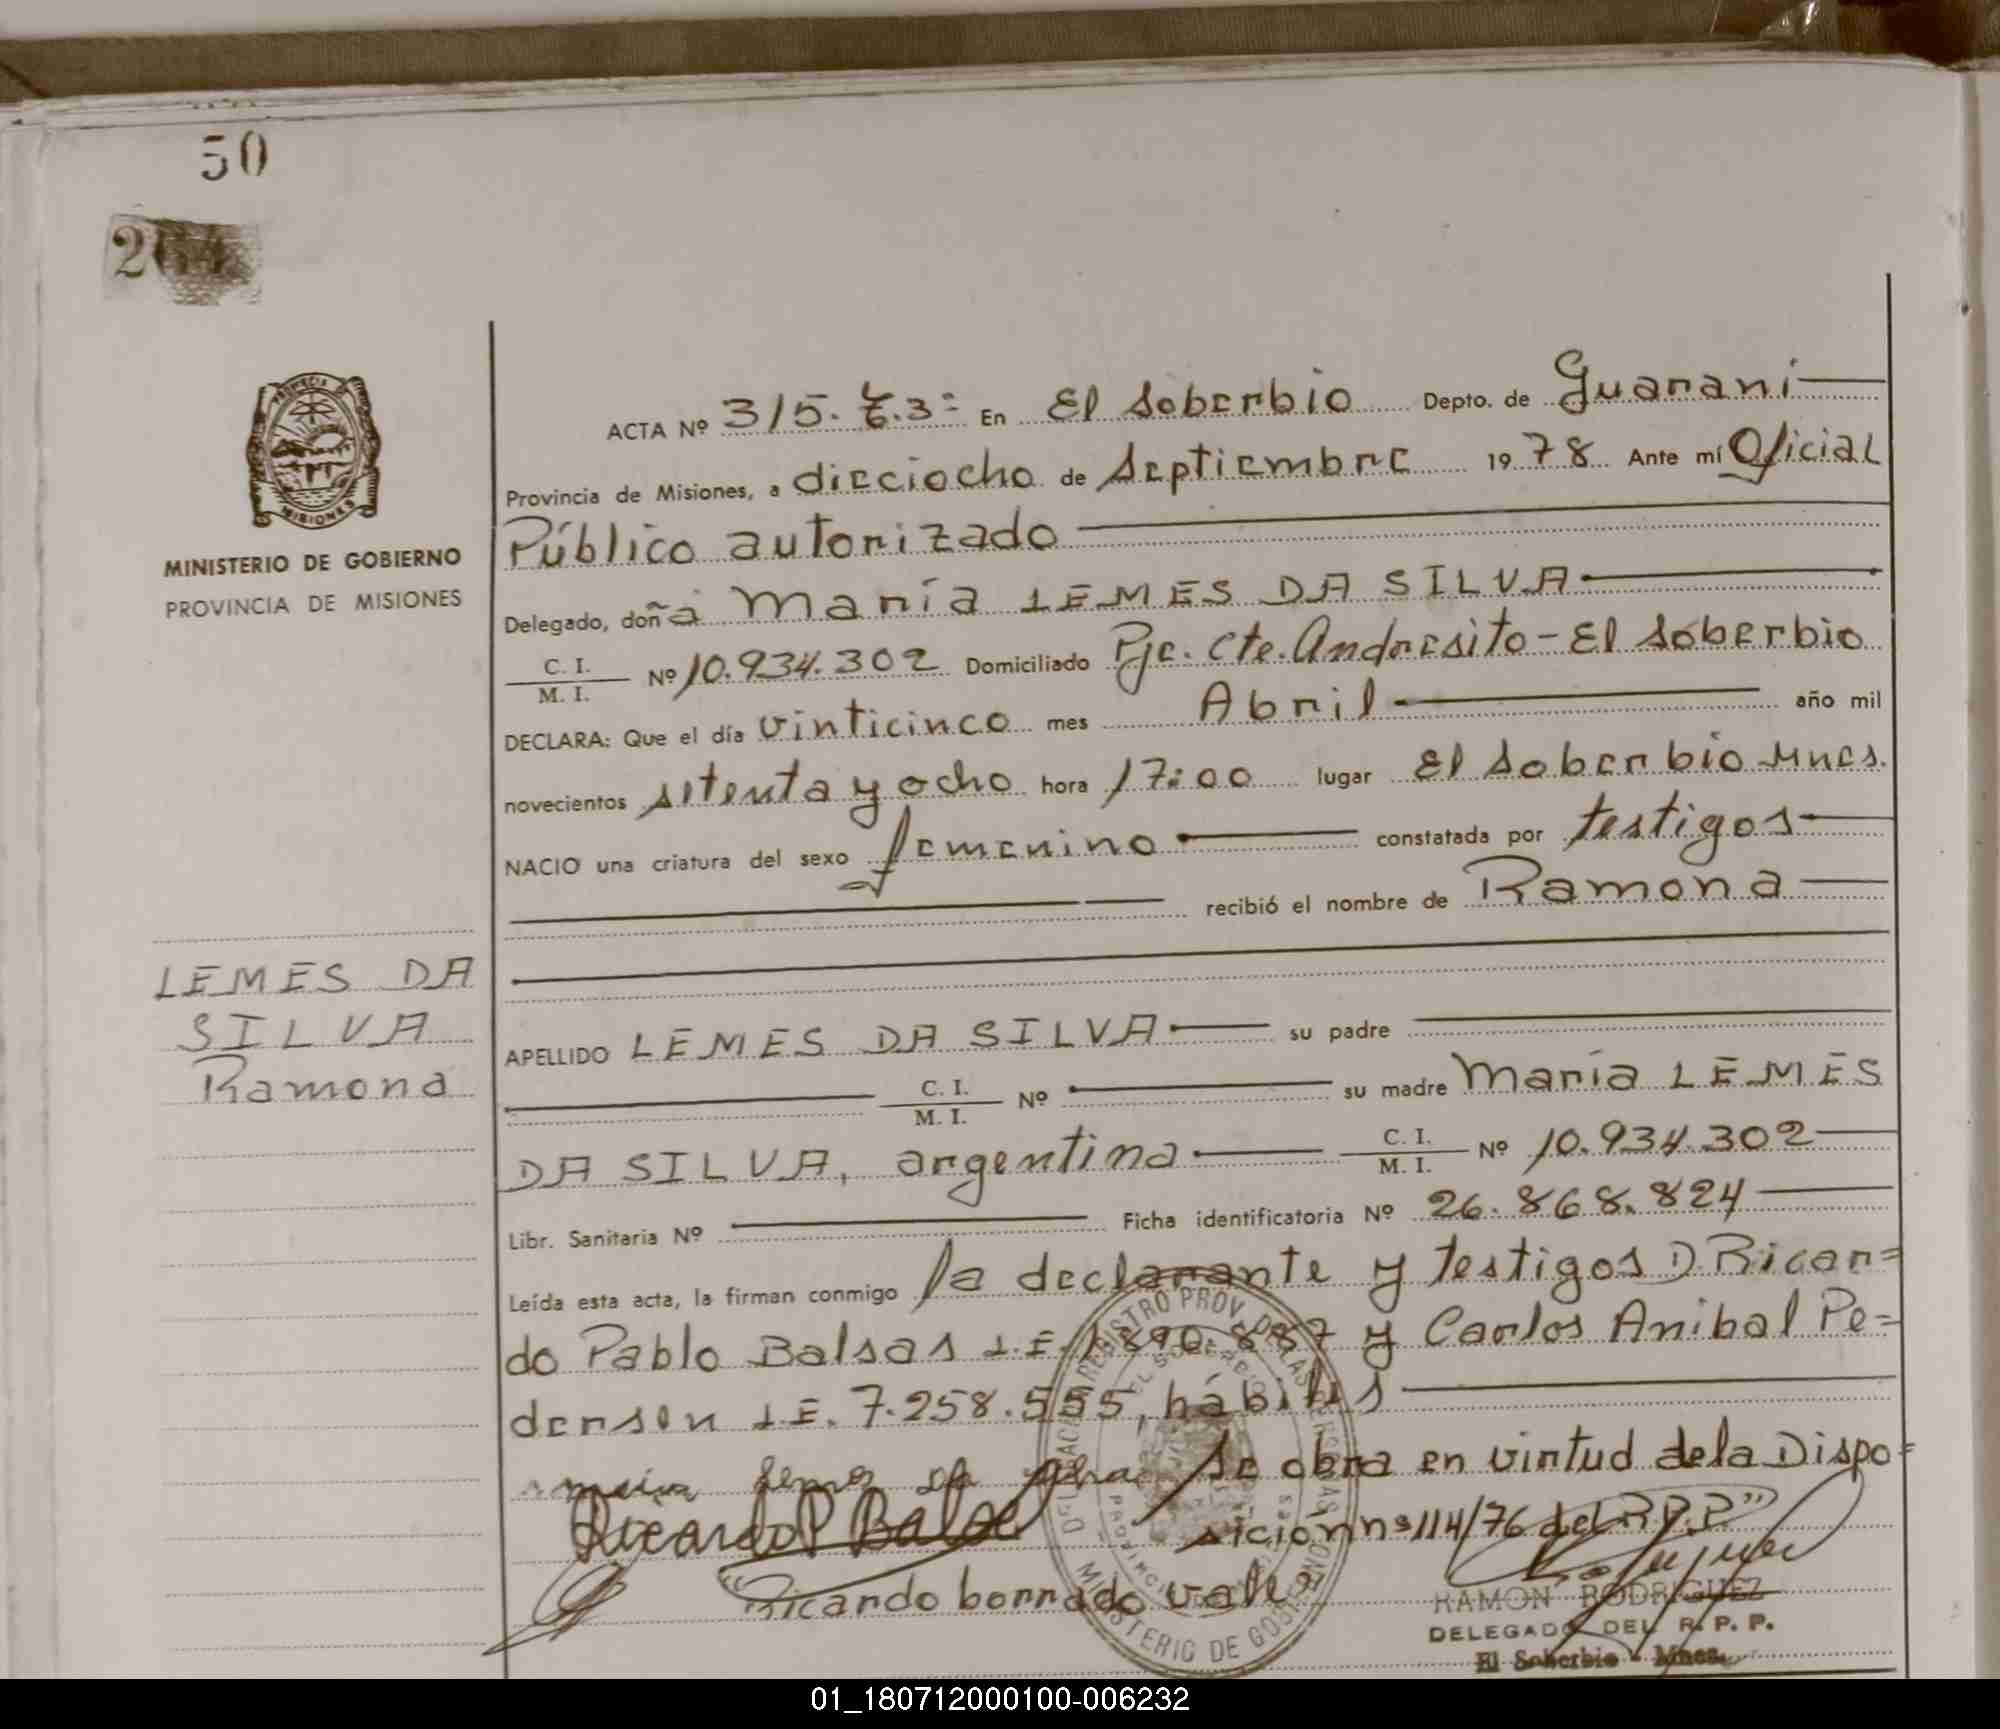 50
MINISTERIO DE GOBIERNO
PROVINCIA DE MISIONES
ACTA Nº 315. T.3º En El Soberbio Depto. de Guarani
Provincia de Misiones, a dieciocho de Septiembre 19 78 Ante mí Oficial
Público autorizado
Delegado, doña María LEMES DA SILVA
C. I. / M. I. Nº 10.934.302 Domiciliado Pje. Cte. Andresito - El Soberbio
DECLARA: Que el día vinticinco mes Abril año mil
novecientos setenta y ocho hora 17:00 lugar El Soberbio Mnes.
NACIO una criatura del sexo femenino constatada por testigos
recibió el nombre de Ramona
LEMES DA
SILVA
Ramona
APELLIDO LEMES DA SILVA su padre
C. I. / M. I. Nº su madre María LEMES
DA SILVA, argentina C. I. / M. I. Nº 10.934.302
Libr. Sanitaria Nº Ficha identificatoria Nº 26.868.824
Leída esta acta, la firman conmigo la declarante y testigos D. Ricar=
do Pablo Balsas L.E. y Carlos Anibal Pe=
dersen L.E. 7.258.555, hábiles
Se obra en virtud de la Dispo=
sición nº 114/76 del R.P.P."
Ricardo P Balsa
"Ricardo borrado vale"
RAMON RODRIGUEZ
DELEGADO DEL R. P. P.
El Soberbio - Mnes.
MINISTERIO DE GOBIERNO
01_180712000100-006232